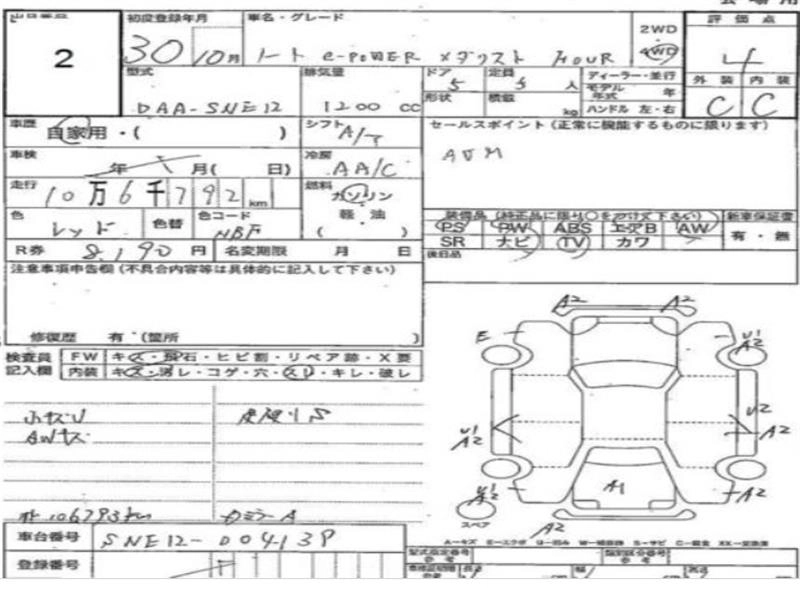 初度登録年月 車名・グレード 評価点
2
30 10月 ノート e-POWER メダリスト 2WD 4WD 4
型式 排気量 ドア 5 定員 5 人 ディーラー・並行 外装 内装
DAA-SNE12 1200 cc 形状 積載 kg モデル年式 年 C C
ハンドル 左・右
車歴 自家用・( ) シフト A/T セールスポイント (正常に機能するものに限ります)
車検 年 月( 日) 冷房 AA/C
AVM
走行 10万6千792 km 燃料 ガソリン 軽・油 ( )
色 レッド 色替 色コード NBF
装備品 (純正品に限り〇をつけて下さい) 新車保証書
PS PW ABS エアB AW 有・無
SR ナビ TV カワ
R券 8,190 円 名変期限 月 日 後日品
注意事項申告欄 (不具合内容等は具体的に記入して下さい)
修復歴 有 (箇所 )
検査員記入欄 FW キズ・飛石・ヒビ割・リペア跡・X要
内装 キズ・汚レ・コゲ・穴・スレ・キレ・破レ
小キズU
AWキズ
106793km
A2 A2
E U1 A2
U1 A2 U2 A2
A1
U1 A2 A2
スペア
A2
車台番号 SNE12-
登録番号
型式指定番号 参考 類別区分番号 参考